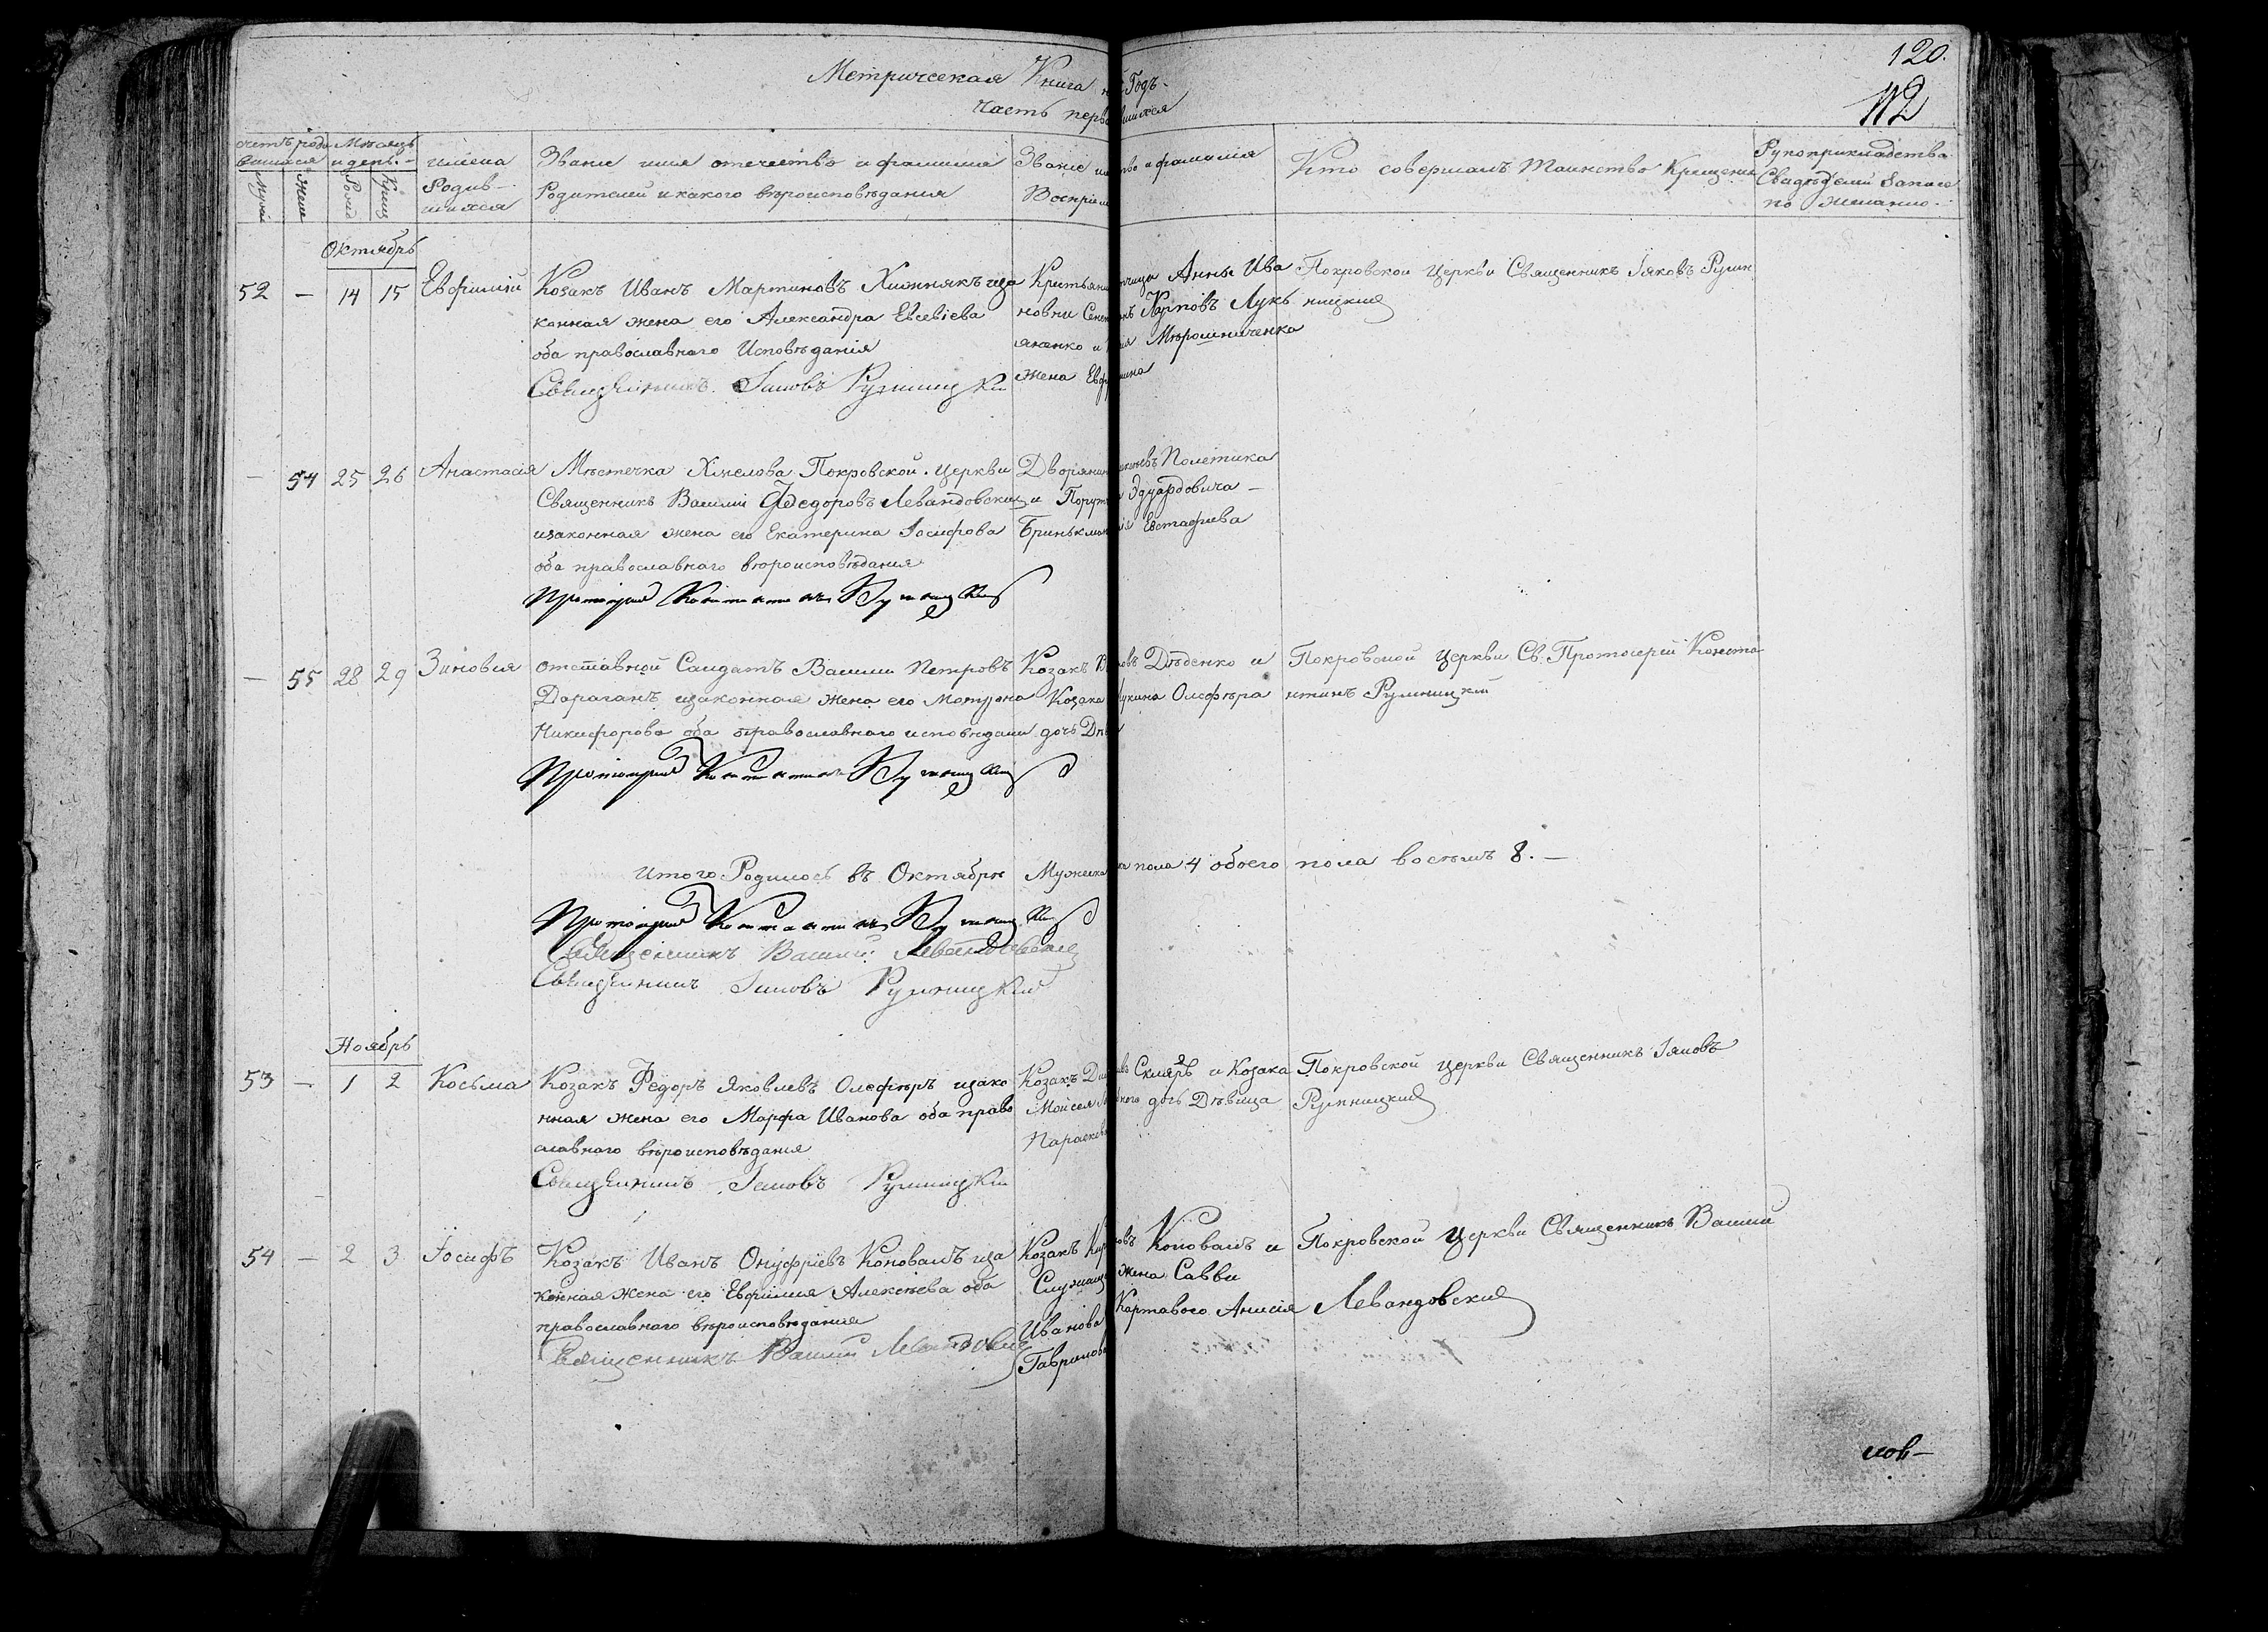 120.
112
Метрическая Книга Годъ
Часть перв
счетъ роди Мѣсяцъ
вшихся и день.
Мужес Женс Рожд Крещ
имена Родив-
шихся
Званіе имя отечество и фамилия
Родителей и какого вѣроисповѣдания
Званіе тво и фамилія
Воспріем
Кто совершалъ Таинство Крещения
Рукоприкладства
Свидѣтелей записи
по желанию.
Октябрь
52 — 14 15 Евфимий Козакъ Иванъ Мартиновъ Хижнякъ иза
конная жена его Александра Евсевіева
оба православнаго Исповѣданія
Священникъ Іаковъ Румницкій
Анны Ива
новни Карповъ Лукь
яненко и Мѣрошниченка
жена
Покровской Церкви Священникъ Іяковъ Румн
ницкий
— 54 25 26 Анастасія Мѣстечка Хмелова Покровской Церкви
Священникъ Василий Федоровъ Левандовский
изаконная жена его Екатерина Іосифова
оба православнаго вѣроисповѣдания
Протоіерей Константинъ Румницкій
Дворянин Полетика
и Эдуардовича —
Евстафиева
— 55 28 29 Зиновия отставной Салдатъ Василий Петровъ
Дараганъ изаконная жена его Мотрона
Никифорова оба православнаго исповѣдания
Протоіерей Константинъ Румницкій
Козакъ Дѣденко и
Козака Олефѣра
дочь
Покровской Церкви Св. Протоиерей Конста
нтинъ Румницкій
Итого Родилось въ Октябрѣ Мужеска пола 4 обоего пола восемъ 8. —
Протоіерей Константинъ Румницкій
Священникъ Василий Левандовский
Священникъ Іаковъ Румницкій
Ноябрь
53 — 1 2 Косьма Козакъ Федоръ Яковлевъ Олефѣръ изако
нная жена его Марфа Иванова оба право
славнаго вѣроисповѣдания
Священникъ Іаковъ Румницкій
Козакъ Скляръ и Козака
Мойсея дочь Дѣвица
Параскев
Покровской Церкви Священникъ Іяковъ
Румницкий
54 — 2 3 Іосифъ Козакъ Иванъ Онуфріевъ Коновалъ иза
конная жена его Евфимия Алексѣева оба
православнаго вѣроисповѣдания
Священникъ Василий Левандовский
Козакъ Коновалъ и
жена Савви
Иванова Картавого Анисія
Гаврилова
Покровской Церкви Священникъ Василий
Левандовский